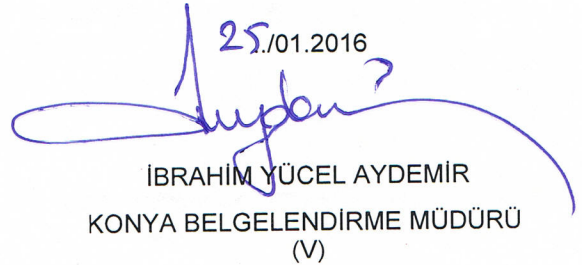 25./01.2016
İBRAHİM YÜCEL AYDEMİR
KONYA BELGELENDİRME MÜDÜRÜ
(V)